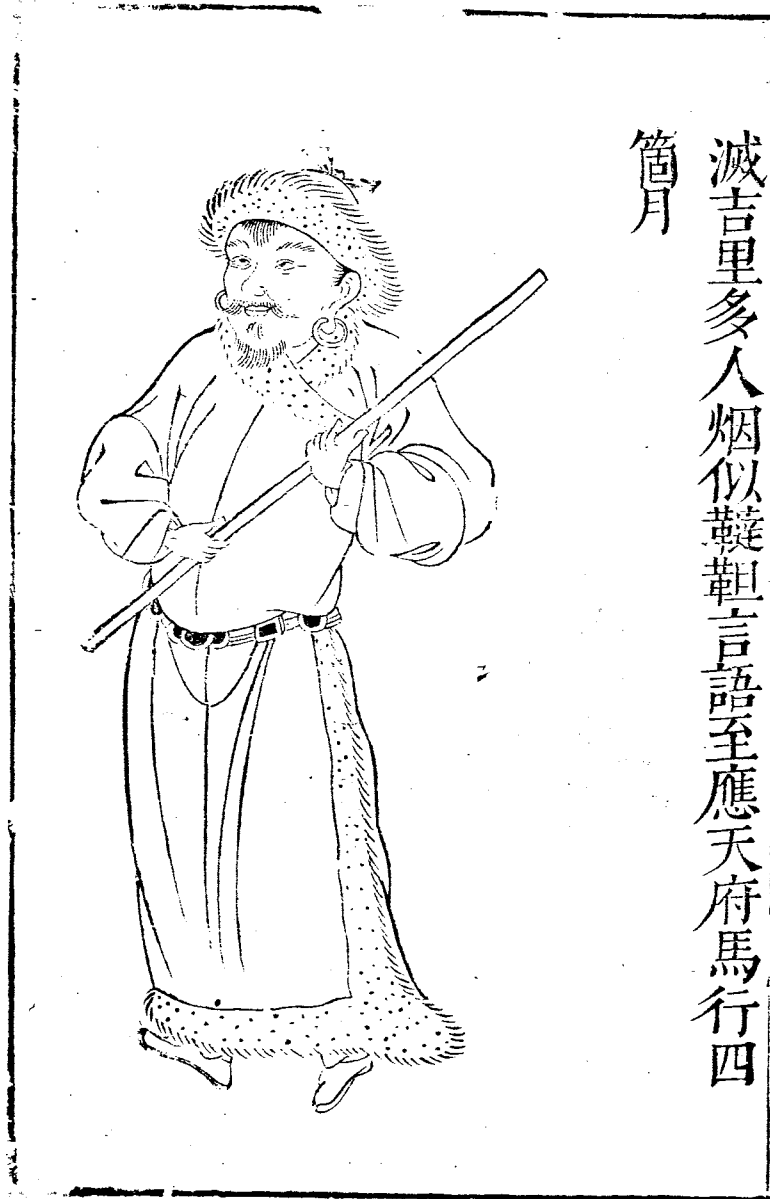 滅吉里多人烟似韃靼言語至應天府馬行四
箇月